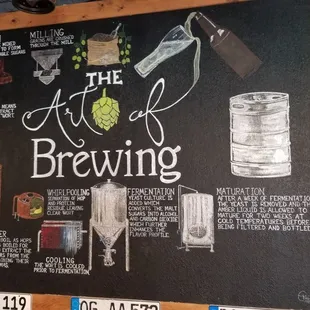 MILLING
GRAINS ARE CRUSHED
THROUGH THE MILL
TO FORM
THE
Art of
Brewing
MEANS
EXTRACT
WORT
WHIRLPOOLING
SEPARATION OF HOP
AND PROTEIN
RESIDUE LEAVING
CLEAR WORT
FERMENTATION
YEAST CULTURE IS
ADDED WHICH
CONVERTS THE MALT
SUGARS INTO ALCOHOL
AND CARBON DIOXIDE
WHICH FURTHER
ENHANCES
THE
FLAVOR PROFILE
MATURATION
AFTER A WEEK OF FERMENTATION
THE YEAST IS REMOVED AND THE
AMBER LIQUID IS ALLOWED TO
MATURE FOR TWO WEEKS AT
COLD TEMPERATURES BEFORE
BEING FILTERED AND BOTTLED
AS HOPS
THE
EXTRACT THE
FROM THE
COOLING
THE WORT IS COOLED
PRIOR TO FERMENTATION
119
OG AA 572